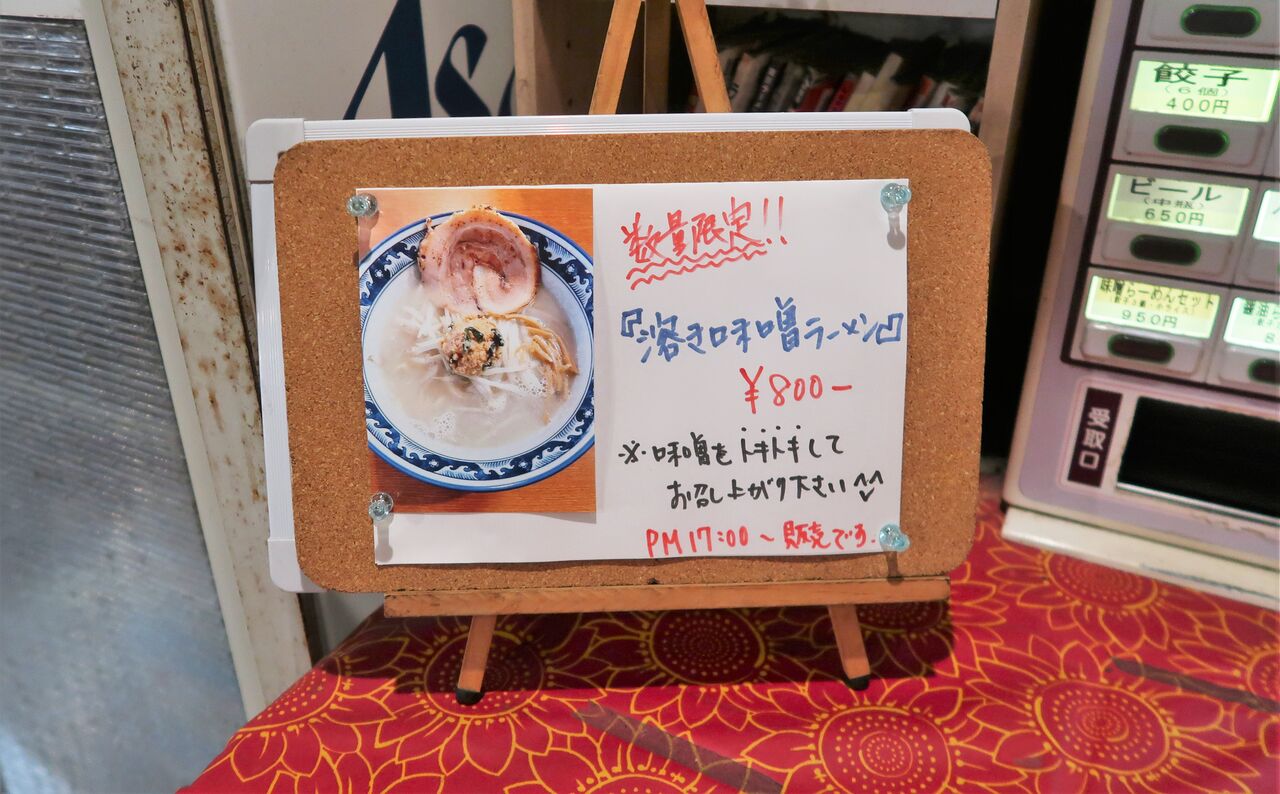 数量限定!!
『溶き味噌ラーメン』
¥800-
※・味噌をトキトキして
お召し上がり下さい^^
PM17:00~販売です.
As
餃子
(6個)
400円
ビール
(中瓶)
650円
味噌らーめんセット
950円
醤油ら
受取口